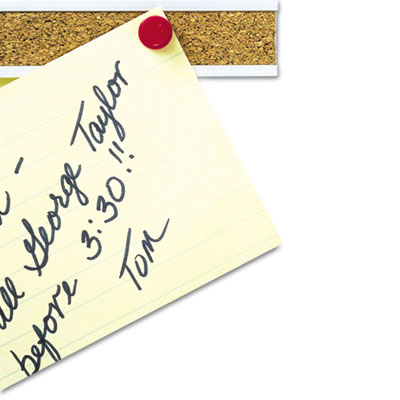 -
all George Taylor
before 3:30!!
Tom